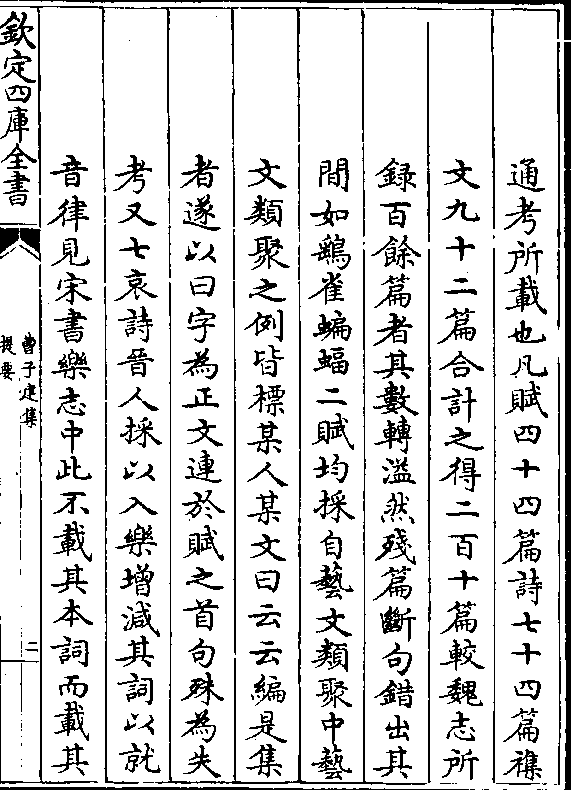 通考所載也凡賦四十四篇詩七十四篇襍
文九十二篇合計之得二百十篇較魏志所
録百餘篇者其數轉溢然殘篇斷句錯出其
間如鷂雀蝙蝠二賦均採自藝文類聚中藝
文類聚之例皆標某人某文曰云云編是集
者遂以曰字為正文連於賦之首句殊為失
考又七哀詩晉人採以入樂增減其詞以就
音律見宋書樂志中此不載其本詞而載其
欽定四庫全書
曹子建集
提要
二